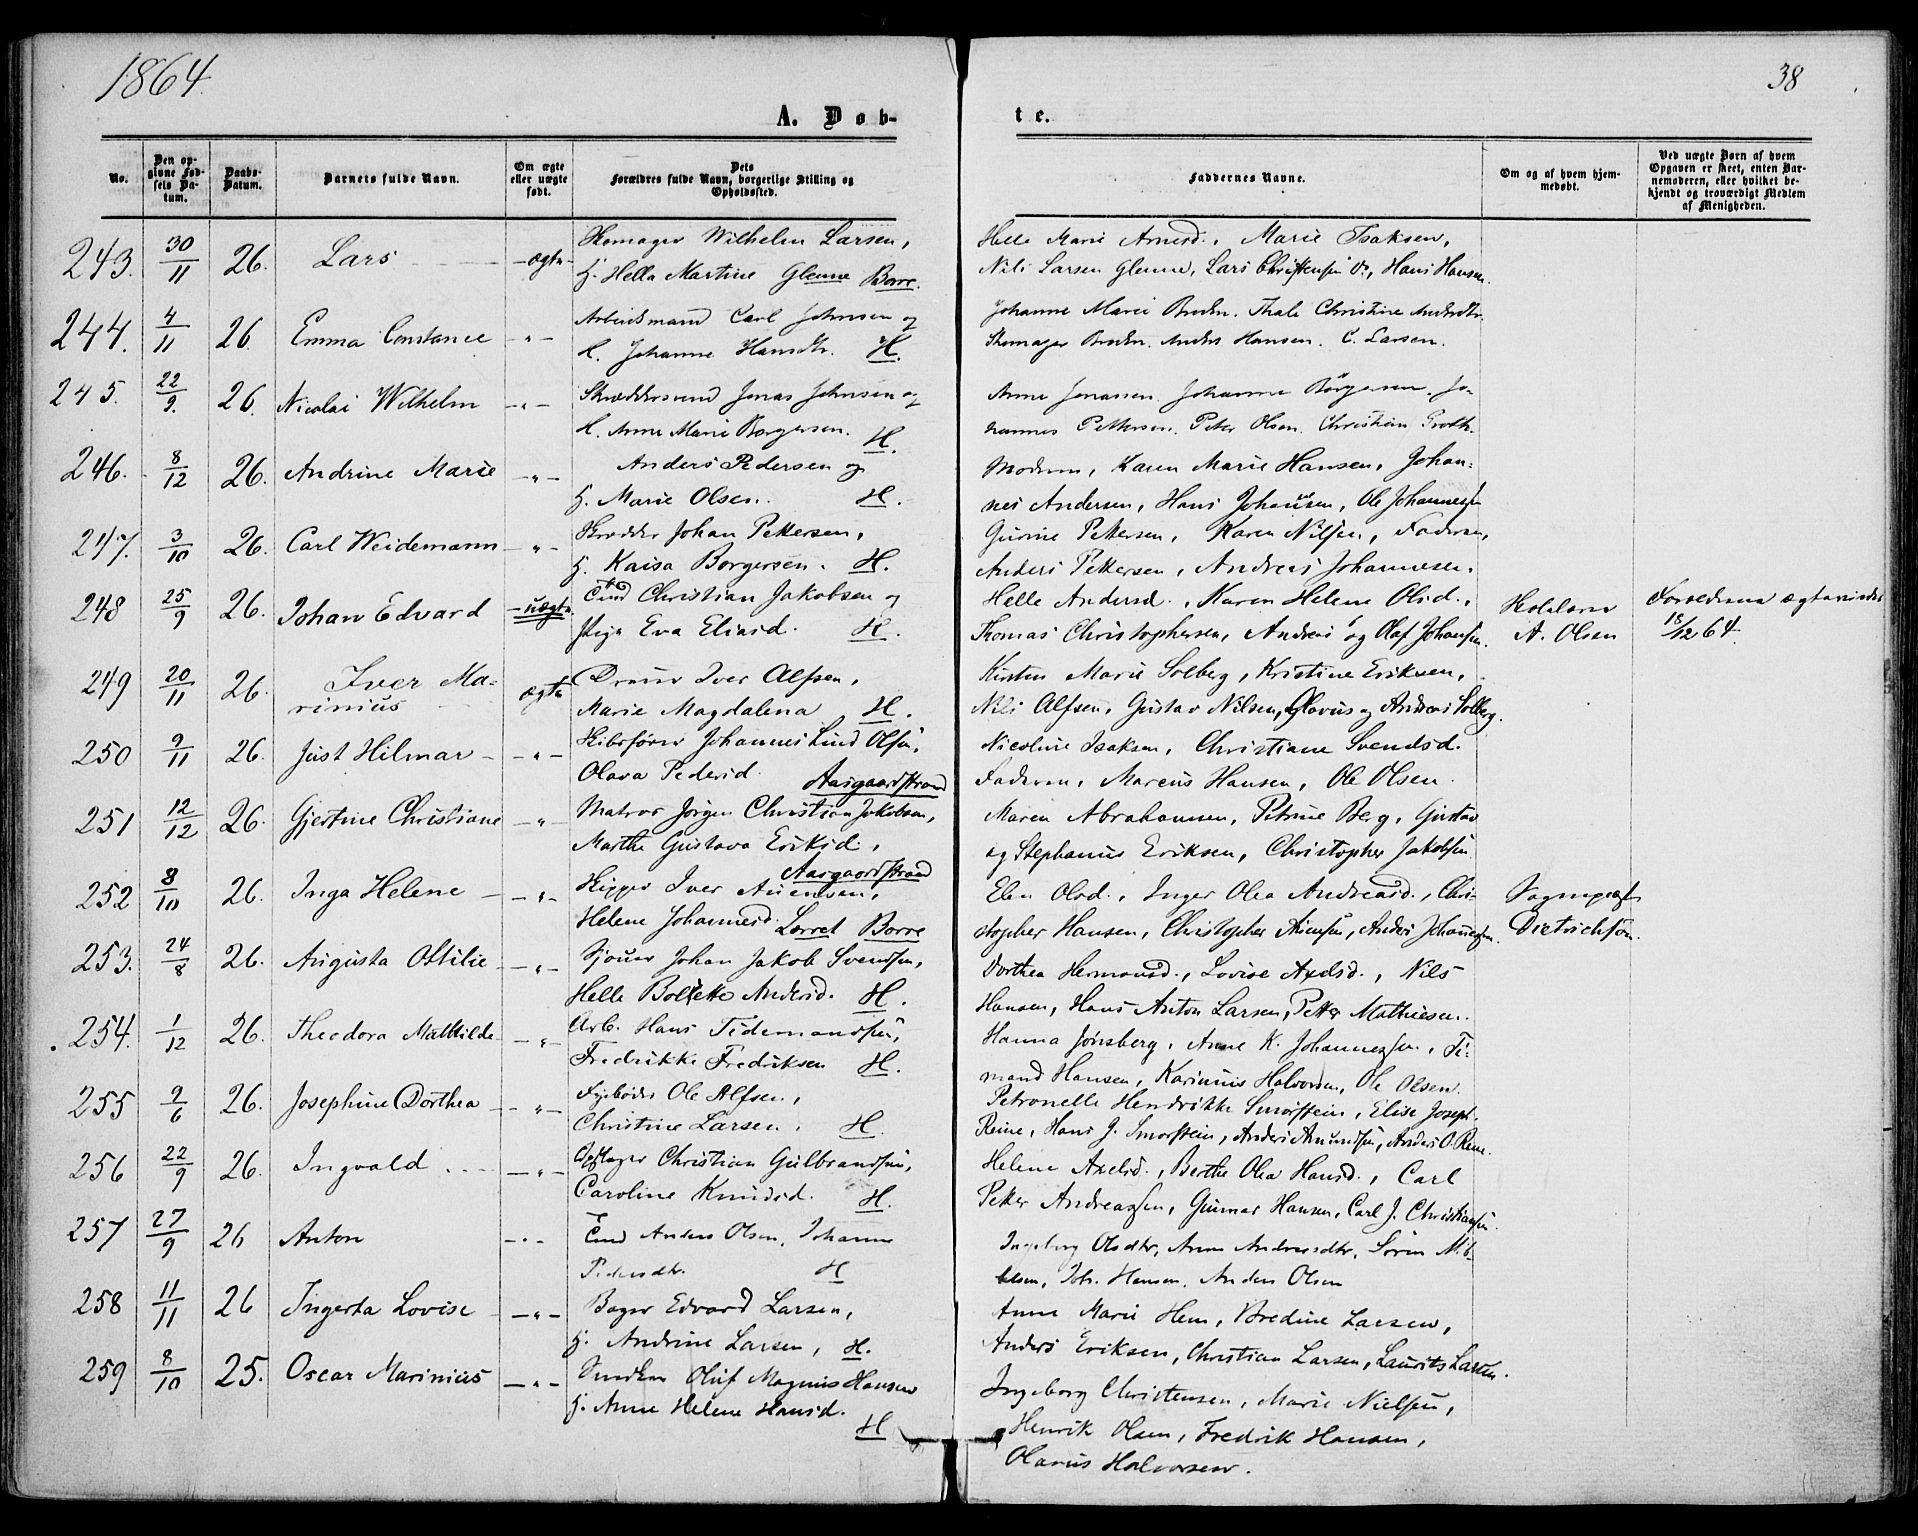 1864.
38
A. Døb-
te.
No.
Den op-
givne Fød-
sels Da-
tum.
Daabs-
Datum.
Barnets fulde Navn.
Om ægte
eller uægte
født.
Dets
Forældres fulde Navn, borgerlige Stilling og
Opholdssted.
Faddernes Navne.
Om og af hvem hjem-
medøbt.
Ved uægte Børn af hvem
Opgaven er skeet, enten Bar-
nemoderen, eller hvilket be-
kjendt og troværdigt Medlem
af Menigheden.
243. 30/11 26. Lars ægte Skomager Wilhelm Larsen,
H. Hella Martine Glenne Borre.
Helle Marie Arnesd., Marie Isaksen,
Nils Larsen Glenne, Lars Christensen, Hans Hansen
244. 4/11 26. Emma Constance -"- Arbeidsmand Carl Johnsen og
H. Johanne Hansdtr. H.
Johanne Marie Thale Christine Andersdtr.
Skomager Anders Hansen. C. Larsen.
245. 22/9. 26. Nicolai Wilhelm -"- Skræddersvend Jonas Johnsen og
H. Anne Marie Borgersen. H.
Anne Jonassen. Johanne Börgersen. Jo-
hannes Pettersen. Peter Olsen. Christian
246. 8/12 26. Andrine Marie -"- Anders Pedersen og
H. Marie Olsen. H.
Moderen, Karen Marie Hansen, Johan-
nes Andersen, Hans Johansen, Ole Johannesen
247. 3/10 26. Carl Weidemann -"- Skrædder Johan Pettersen,
H. Kaisa Borgersen. H.
Gurine Pettersen, Karen Nilsen, Faderen,
Anders Pettersen, Andreas Johannesen.
248 25/9 26. Johan Edvard uægte Christian Jakobsen og
Pige Eva Eliasd. H.
Helle Andersd., Karen Helene Olsd.,
Thomas Christophersen, Andreas og Olaf Johansen.
A. Olsen
18/12 64.
249 20/11 26. Iver Ma-
rinius ægte Iver Alfsen,
Marie Magdalena H.
Kirsten Marie Solberg, Kristine Eriksen,
Nils Alfsen, Gustav Nilsen, Olavus og Andreas Solberg.
250 9/11 26. Just Hilmar -"- Skibsfører Johannes Lund Olsen,
Olava Pedersd. Aasgaardstrand
Nicoline Isaksen, Christiane Svendsd.
Faderen, Marcus Hansen, Ole Olsen.
251 12/12 26. Gjertine Christiane -"- Matros Jörgen Christian Jakobsen,
Marthe Gustava Eriksd., Aasgaardstrand
Maren Abrahamsen, Petrine Berg, Gustav
og Stephanus Eriksen, Christopher Jakobsen
252 8/10 26. Inga Helene -"- Skipper Iver
Helene Johannesd. Lørret Borre
Elen Olsd., Inger Olea Andreasd., Chri-
stopher Hansen, Christopher Anders Johannesen.
Sognepræst
Dietrichson.
253. 24/8 26. Augusta Ottilie -"- Sjouer Johan Jakob Svendsen,
Helle Bolette Andersd. H.
Dorthea Hermansd., Lovise Axelsd., Nils
Hansen, Hans Anton Larsen, Petter Mathiesen.
254. 1/12 26. Theodora Mathilde -"- Arb. Hans Tidemandsen,
Fredrikke Fredriksen H.
Hanna Jønsberg, Anne K. Johannessen, Ti-
mand Hansen, Karinius Halvorsen, Ole Olsen.
255 2/6 26. Josephine Dorthea -"- Ole Alfsen,
Christine Larsen, H.
Petronelle Hendrikke Smørstein, Elise Joseph.
Reine, Hans J. Smørstein, Anders Amundsen, Anders O. Reine.
256 22/9 26. Ingvald -"- Christian Gulbrandsen,
Caroline Knudsd. H.
Helene Axelsd., Berthe Olea Hansd., Carl
Petter Andreassen, Gunnar Hansen, Carl J. Christiansen.
257 27/9 26 Anton -"- Anders Olsen, Johanne
Pedersdtr. H
Ingeborg Olsdtr, Anne Andreasdtr, Sören Mik-
kelsen, Joh. Hansen, Anders Olsen
258 11/11 26 Ingerta Lovise -"- Bager Edvard Larsen,
H. Andrine Larsen, H.
Anne Marie Hem, Bredine Larsen,
Anders Eriksen, Christian Larsen, Laurits Larsen.
259 8/10 25. Oscar Marinius -"- Oluf Magnus Hansen
H. Anne Helene Hansd.
H
Ingeborg Christensen, Marie Nielsen,
Henrik Olsen, Fredrik Hansen,
Olavus Halvorsen.